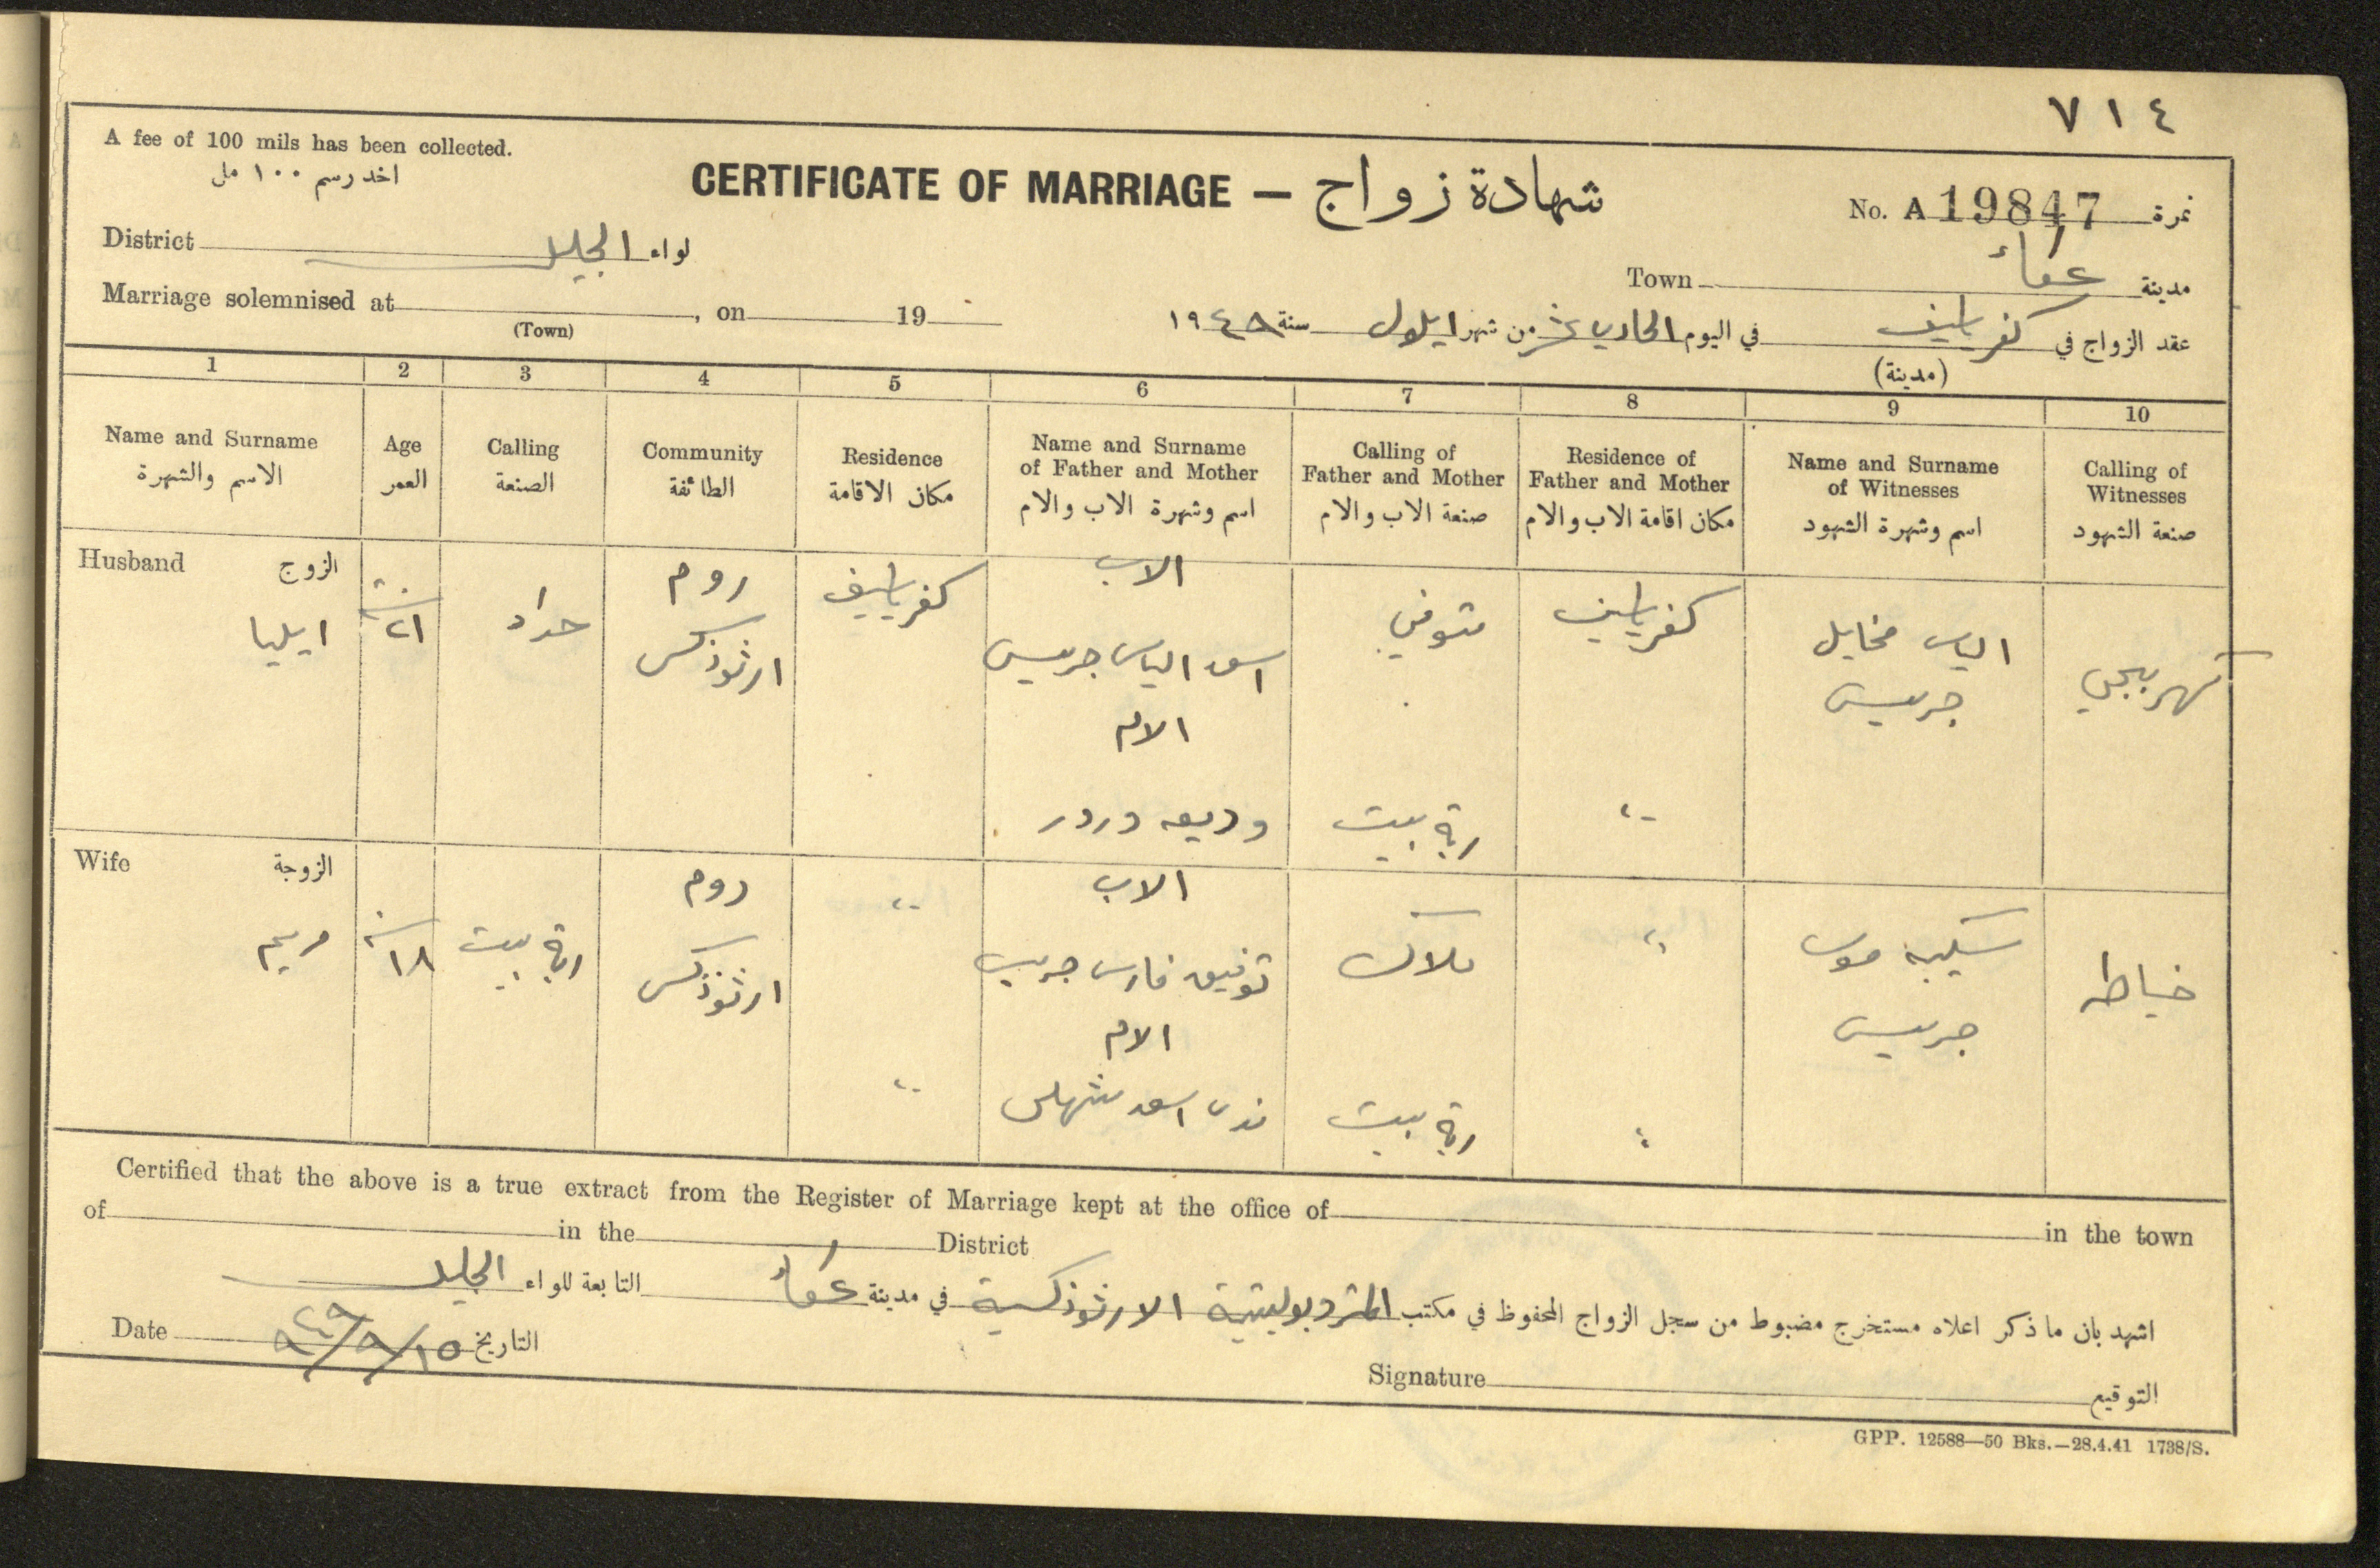 ٧١٤
A fee of 100 mils has been collected.
اخد رسم ١٠٠ مل
CERTIFICATE OF MARRIAGE — شهادة زواج
No. A 19847 نمرة
District الجليل لواء
Town عكاء مدينة
Marriage solemnised at , on 19
(Town)
عقد الزواج في كفرياسيف في اليوم الحادي عشر من شهر ايلول سنة ١٩٤٨
(مدينة)
1 2 3 4 5 6 7 8 9 10
Name and Surname
الاسم والشهرة
Age
العمر
Calling
الصنعة
Community
الطائفة
Residence
مكان الاقامة
Name and Surname
of Father and Mother
اسم وشهرة الاب والام
Calling of
Father and Mother
صنعة الاب والام
Residence of
Father and Mother
مكان اقامة الاب والام
Name and Surname
of Witnesses
اسم وشهرة الشهود
Calling of
Witnesses
صنعة الشهود
Husband الزوج
ايليا
٢١ سنة
حداد
روم
ارثوذكس
كفرياسيف
الاب
اسعد الياس جريس
الام
وديعه دردر
متوفي
ربة بيت
كفرياسيف
"
الياس مخايل
جريس
كهربجي
Wife الزوجة
مريم
١٨ سنة
ربة بيت
روم
ارثوذكس
"
"
الاب
توفيق فارس جريس
الام
ندى اسعد
ملاك
ربة بيت
"
"
موسى
جريس
خياطه
Certified that the above is a true extract from the Register of Marriage kept at the office of in the town
of in the District
اشهد بان ما ذكر اعلاه مستخرج مضبوط من سجل الزواج المحفوظ في مكتب المتروبوليتية الارثوذكسية في مدينة عكاء التابعة للواء الجليل
Date التاريخ ١٥
Signature التوقيع
GPP. 12588—50 Bks.—28.4.41 1738/S.